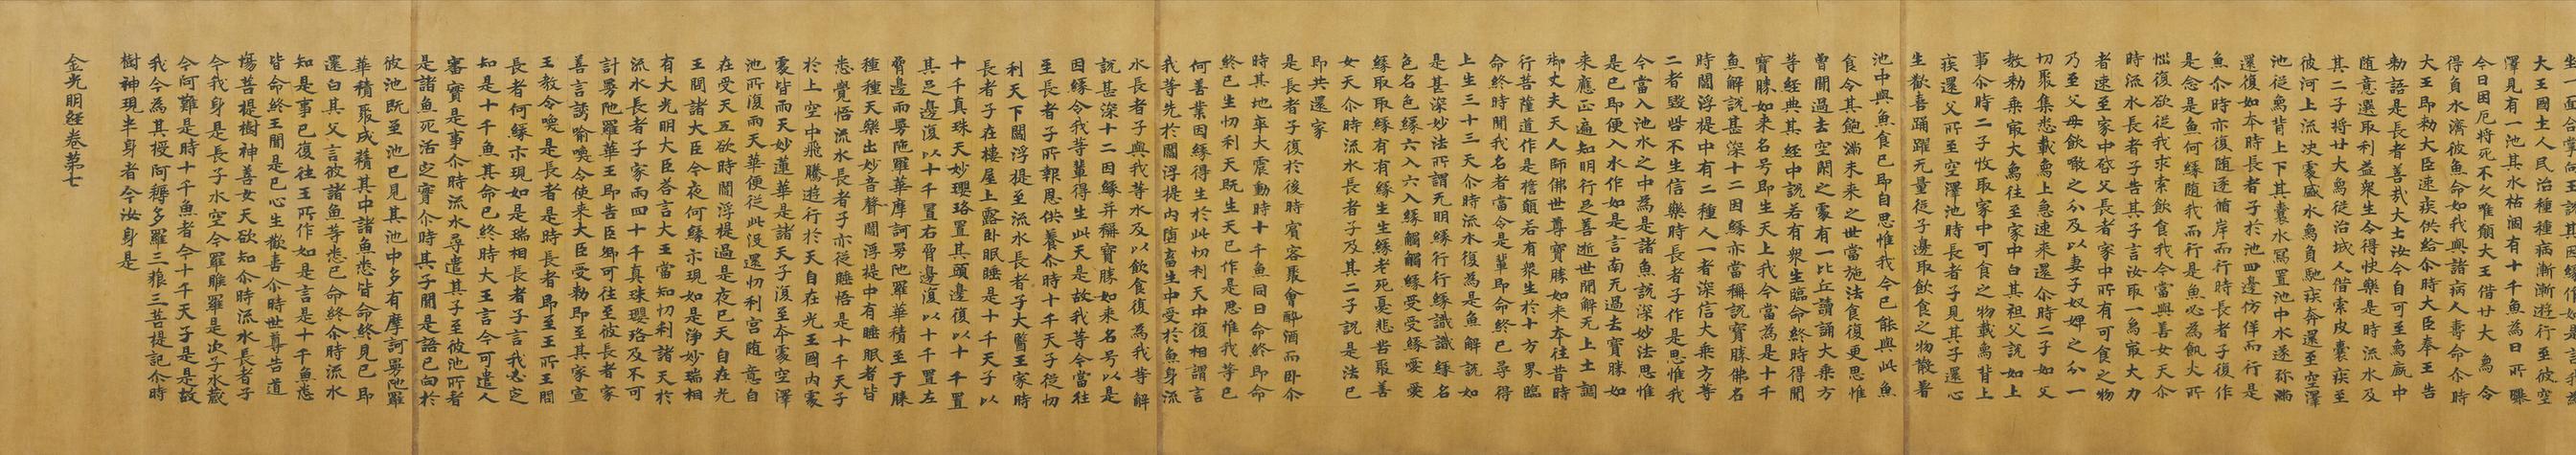 大王國土人民治種種病漸漸遊行至彼空
澤見有一池其水枯涸有十千魚為日所曝
今日困厄將死不久唯願大王借廿大象令
得負水濟彼魚命如我與諸病人壽命尒時
大王即勅大臣速疾供給尒時大臣奉王告
勅語是長者善哉大士汝今自可至象廄中
隨意選取利益眾生令得快樂是時流水及
其二子將廿大象從治城人借索皮囊疾至
彼河上流決處盛水象負馳疾奔還至空澤
池從象背上下其囊水寫置池中水遂弥滿
還復如本時長者子於池四邊仿佯而行是
魚尒時亦復隨逐循岸而行時長者子復作
是念是魚何緣隨我而行是魚必為飢火所
惱復欲從我求索飲食我今當與善女天尒
時流水長者子告其子言汝取一象冣大力
者速至家中啓父長者家中所有可食之物
乃至父母飲噉之分及以妻子奴婢之分一
切聚集悉載象上急速來還尒時二子如父
教勅乘冣大象往至家中白其祖父說如上
事尒時二子收取家中可食之物載象背上
疾還父所至空澤池時長者子見其子還心
生歡喜踊躍无量從子邊取飲食之物散著
池中與魚食已即自思惟我今已能與此魚
食令其飽滿未來之世當施法食復更思惟
曾聞過去空閑之處有一比丘讀誦大乘方
等經典其經中說若有眾生臨命終時得聞
寶勝如來名号即生天上我今當為是十千
魚解說甚深十二因緣亦當稱說寶勝佛名
時閻浮提中有二種人一者深信大乘方等
二者毀呰不生信樂時長者子作是思惟我
今當入池水之中為是諸魚說深妙法思惟
是已即便入水作如是言南无過去寶勝如
來應正遍知明行足善逝世間解无上士調
御丈夫天人師佛世尊寶勝如來本往昔時
行菩薩道作是誓願若有眾生於十方界臨
命終時聞我名者當令是輩即命終已尋得
上生三十三天尒時流水復為是魚解說如
是甚深妙法所謂无明緣行行緣識識緣名
色名色緣六入六入緣觸觸緣受受緣愛愛
緣取取緣有有緣生生緣老死憂悲苦惱善
女天尒時流水長者子及其二子說是法已
即共還家
是長者子復於後時賓客聚會醉酒而卧尒
時其地卒大震動時十千魚同日命終即命
終已生忉利天既生天已作是思惟我等已
何善業因緣得生於此忉利天中復相謂言
我等先於閻浮提內墮畜生中受於魚身流
水長者子與我等水及以飲食復為我等解
說甚深十二因緣并稱寶勝如來名号以是
因緣令我等輩得生此天是故我等今當往
至長者子所報恩供養尒時十千天子從忉
利天下閻浮提至流水長者子大醫王家時
長者子在樓屋上露卧眠睡是十千天子以
十千真珠天妙瓔珞置其頭邊復以十千置
其足邊復以十千置右脅邊復以十千置左
脅邊雨曼陁羅華摩訶曼陁羅華積至于膝
種種天樂出妙音聲閻浮提中有睡眠者皆
悉覺悟流水長者子亦從睡悟是十千天子
於上空中飛騰遊行於天自在光王國內處
處皆雨天妙蓮華是諸天子復至本處空澤
池所復雨天華便從此沒還忉利宮隨意自
在受天五欲時閻浮提過是夜已天自在光
王問諸大臣今夜何緣示現如是淨妙瑞相
有大光明大臣荅言大王當知忉利諸天於
流水長者子家雨四十千真珠瓔珞及不可
計曼陁羅華王即告臣卿可往至彼長者家
善言誘喻喚令使來大臣受勅即至其家宣
王教令喚是長者是時長者即至王所王問
長者何緣示現如是瑞相長者子言我必定
知是十千魚其命已終時大王言今可遣人
審實是事尒時流水尋遣其子至彼池所看
是諸魚死活之實尒時其子聞是語已向於
彼池既至池已見其池中多有摩訶曼陁羅
華積聚成𧂐其中諸魚悉皆命終見已即
還白其父言彼諸魚等悉已命終尒時流水
知是事已復往王所作如是言是十千魚悉
皆命終王聞是已心生歡喜尒時世尊告道
場菩提樹神善女天欲知尒時流水長者子
今我身是長子水空今羅睺羅是次子水藏
今阿難是時十千魚者今十千天子是是故
我今為其授阿耨多羅三藐三菩提記尒時
樹神現半身者今汝身是
金光明經卷第七